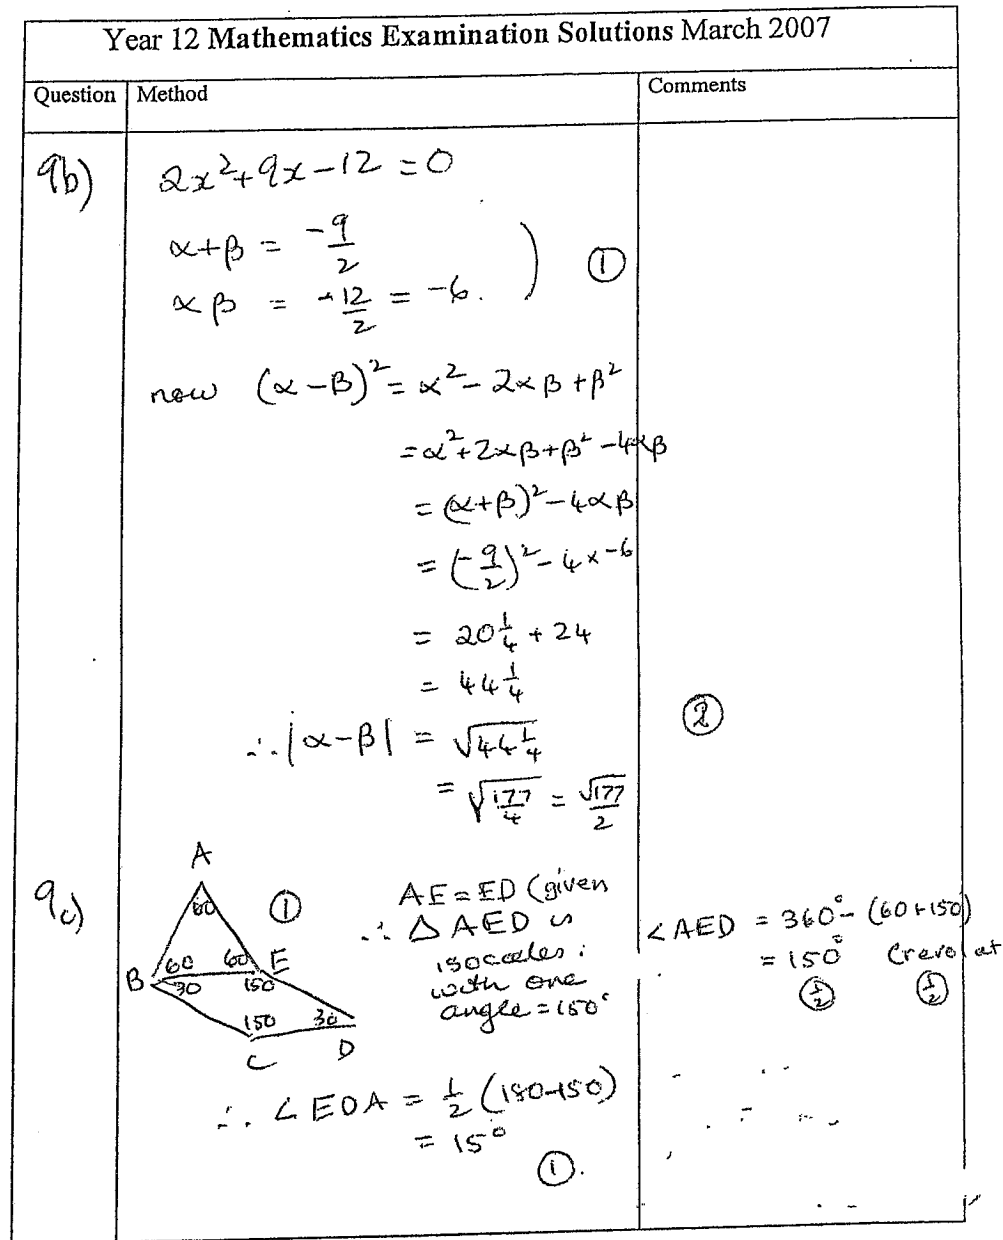 Year 12 Mathematics Examination Solutions March 2007
Question Method Comments
9b) 2x²+9x-12 = 0
α+β = -9/2
αβ = -12/2 = -6. ) ①
now (α-β)² = α² - 2αβ + β²
= α²+2αβ+β² -4αβ
= (α+β)² - 4αβ
= (-9/2)² - 4 x -6
= 20 1/4 + 24
= 44 1/4
②
∴ |α-β| = √44 1/4
= √177/4 = √177/2
9c)
A
60 ①
B 60 60 E
30 150
150 30
C D
AE = ED (given
∴ △ AED is
isoceles :
with one
angle = 150°
∠AED = 360° - (60+150)
= 150° (revol at
½ ½
∴ ∠EDA = ½ (180-150)
= 15°
①.